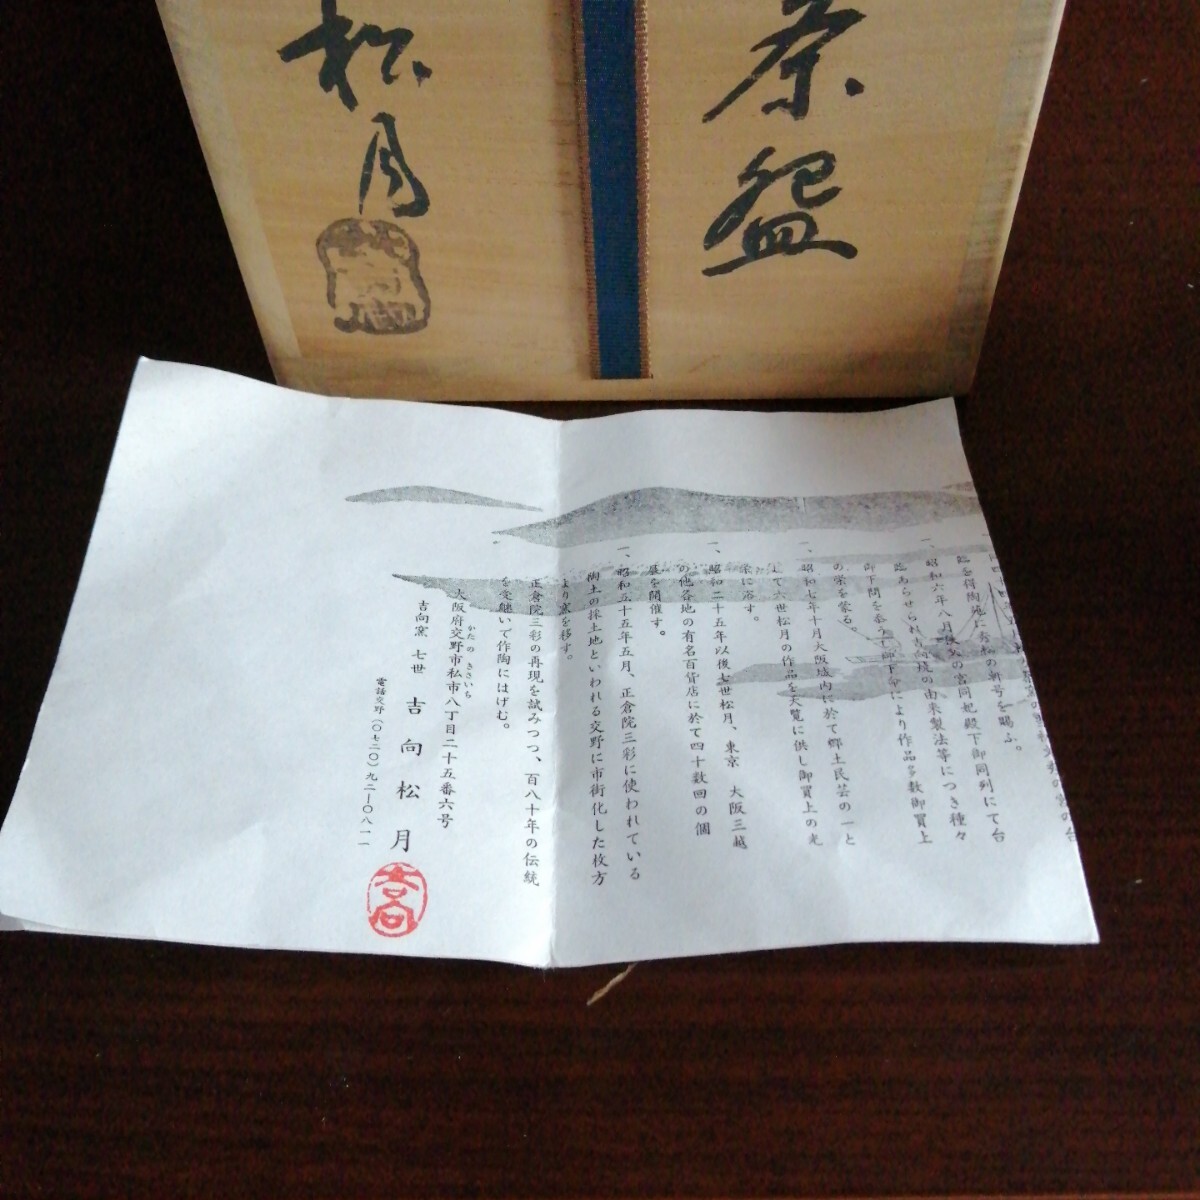 茶盌
松月
臨を得陶苑に
の新号を賜ふ。
一、昭和六年八月
の宮同妃殿下御同列にて台
臨あらせられ吉向焼の由来製法等につき種々
御下問を忝うし御下命により作品多数御買上
の栄を蒙る。
一、昭和七年十月大阪城内に於て郷土民芸の一と
して六世松月の作品を天覧に供し御買上の光
栄に浴す。
一、昭和二十五年以後七世松月、東京 大阪三越
の他各地の有名百貨店に於て四十数回の個
展を開催す。
一、昭和五十五年五月、正倉院三彩に使われている
陶土の採土地といわれる交野に市街化した枚方
より窯を移す。
正倉院三彩の再現を試みつつ、百八十年の伝統
を受継いで作陶にはげむ。
大阪府交野市私市八丁目二十五番六号
かたの きさいち
吉向窯 七世 吉向松月
電話交野(〇七二〇)九二-〇八一一
吉向